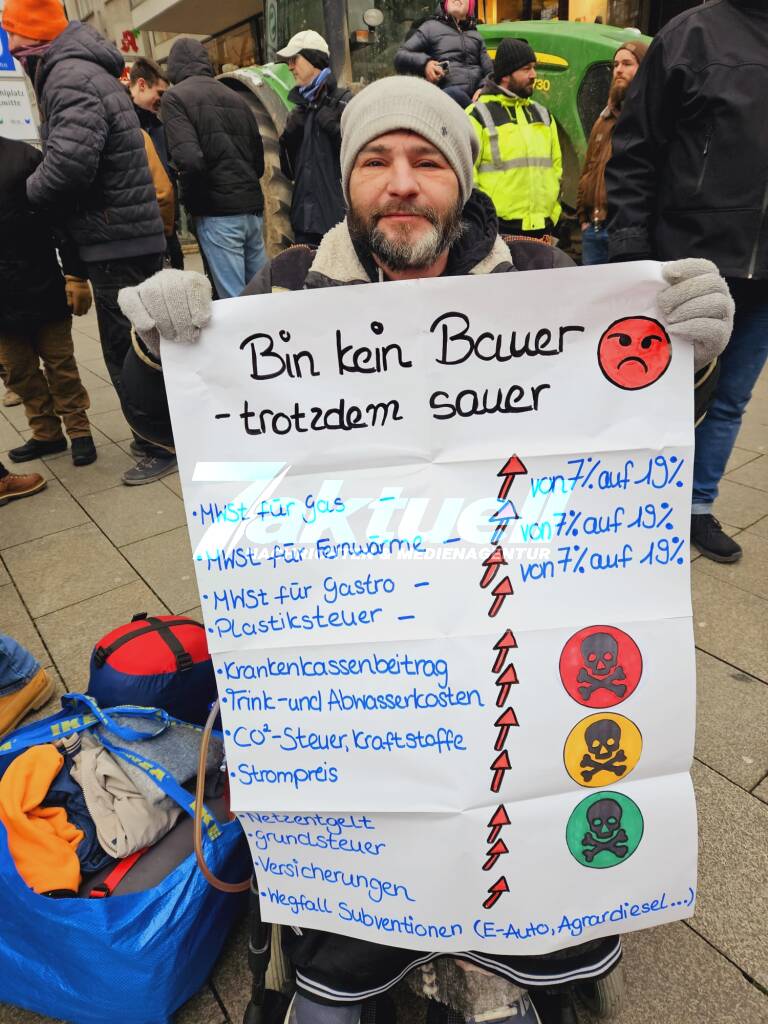 Bin kein Bauer
- trotzdem sauer
• MWSt für Gas - von 7% auf 19%
• MWSt für Fernwärme - von 7% auf 19%
• MWSt für Gastro - von 7% auf 19%
• Plastiksteuer -
• Krankenkassenbeitrag
• Trink- und Abwasserkosten
• CO²-Steuer, Kraftstoffe
• Strompreis
• Netzentgelt
• Grundsteuer
• Versicherungen
• Wegfall Subventionen (E-Auto, Agrardiesel...)
7aktuell
IKEA
730